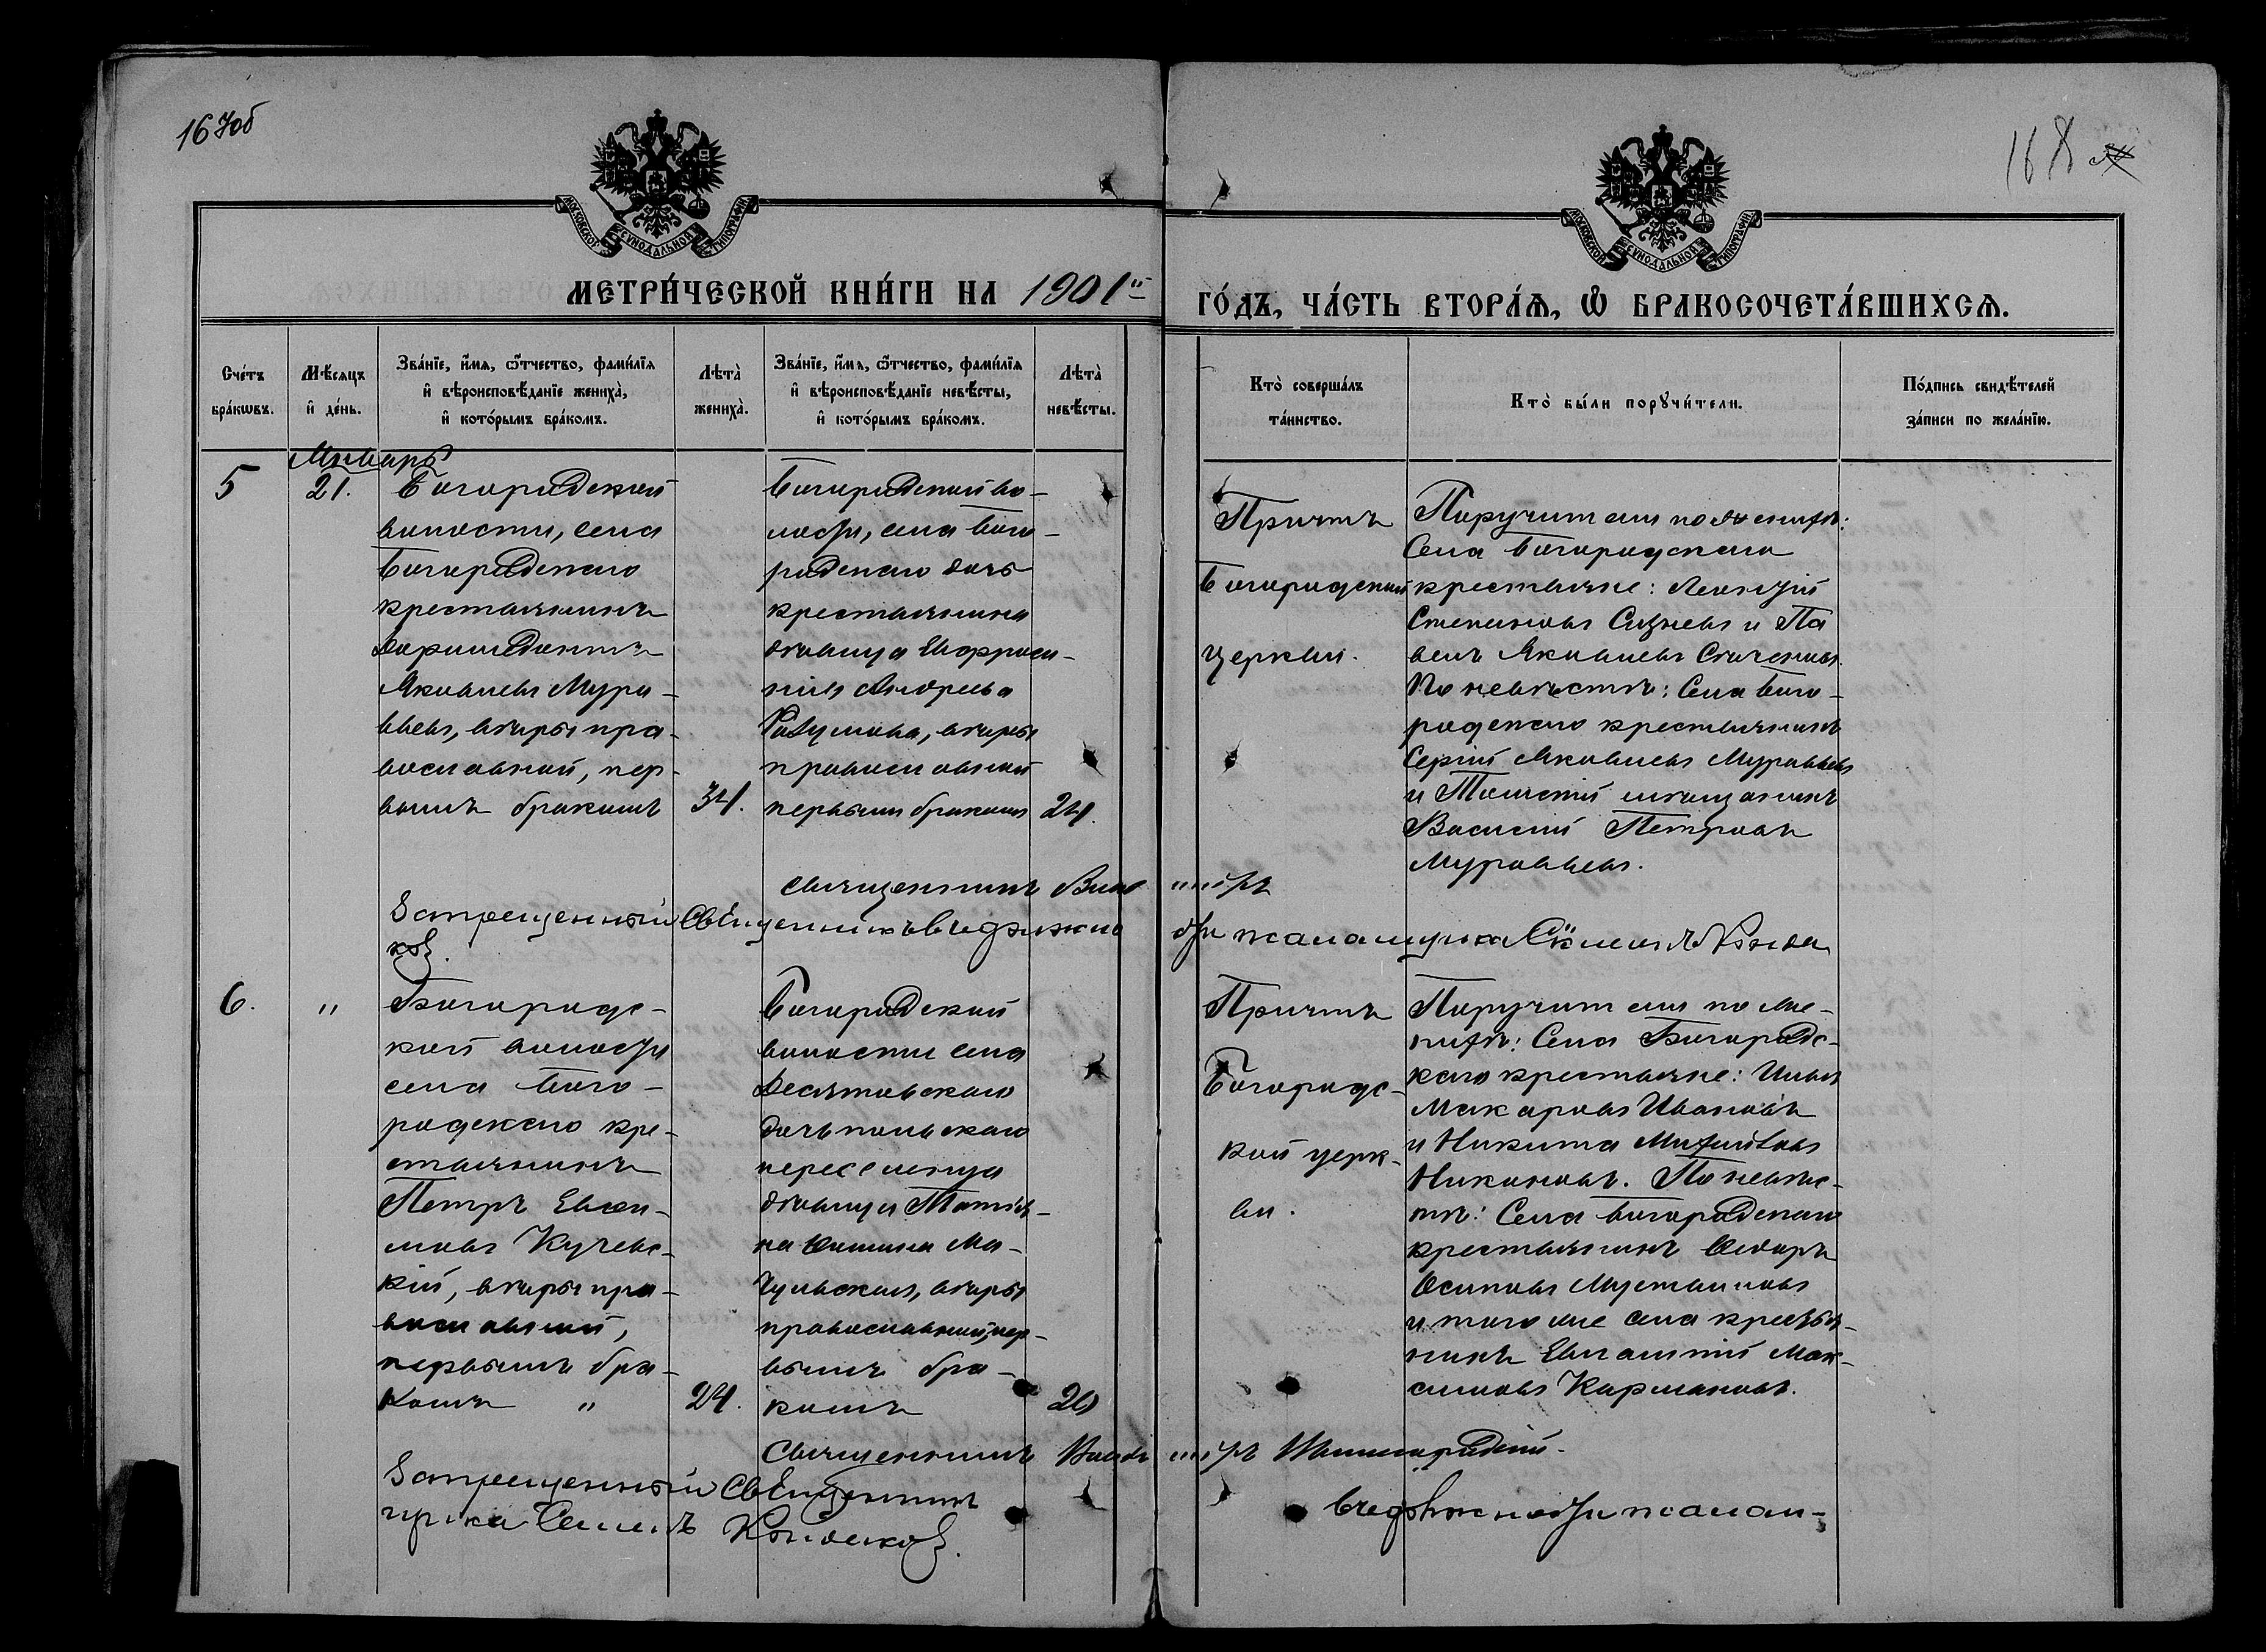 167об
168
МОСКОВСКОЙ СѴНОДАЛЬНОЙ ТИПОГРАФІИ
МОСКОВСКОЙ СѴНОДАЛЬНОЙ ТИПОГРАФІИ
МЕТРИ́ЧЕСКОЙ КНИ́ГИ НА 1901й
ГО́ДЪ, ЧА́СТЬ ВТОРА́Ѧ, Ѡ҆ БРАКОСОЧЕТА́ВШИХСѦ.
Сче́тъ
бра́кѡвъ.
Мѣ́сяцъ
и҆ де́нь.
Зва́нїе, и҆́мя, ѻ҆́тчество, фами́лїя
и҆ вѣроисповѣ́данїе жениха̀,
и҆ кото́рымъ бра́комъ.
Лѣта̀
жениха̀.
Зва́нїе, и҆́мя, ѻ҆́тчество, фами́лїя
и҆ вѣроисповѣ́данїе невѣ́сты,
и҆ кото́рымъ бра́комъ.
Лѣта̀
невѣ́сты.
Кто̀ соверша́лъ
та́инство.
Кто̀ бы́ли порꙋчи́тели.
По́дпись свидѣ́телей
за́писи по жела́нїю.
5
Январь
21.
Богородской
волости, села
Богородскаго
крестьянинъ
Яковлевъ Мура-
вьевъ, вѣры пра-
вославной, пер-
вымъ бракомъ
34.
Богородской во-
лости, села Бого-
родскаго дочь
крестьянина
дѣвица Евфроси-
нія Андреева
вѣры
православной
первымъ бракомъ
24.
Причтъ
Богородской
церкви.
Поручители по женихѣ:
Села Богородскаго
крестьяне: Леонтій
Степановъ Сизневъ и Па
велъ Яковлевъ
По невѣстѣ: Села Бого-
родскаго крестьянинъ
Сергій Яковлевъ Муравьевъ
и Томскій мѣщанинъ
Василій Петровъ
Муравьевъ.
Священникъ
Запрещенный Священникъ
6.
"
Богородс-
кой волости
села Бого-
родскаго кре-
стьянинъ
Петръ Евси-
мовъ Кучевс-
кій, вѣры пра-
вославной,
первымъ бра-
комъ "
24.
Богородской
волости села
Десятовскаго
дочь польскаго
переселенца
дѣвица Татія-
на Ма-
чульская, вѣры
православной, пер-
вымъ бра-
комъ
20
Причтъ
Богородс-
кой церк-
ви.
Поручители по же-
нихѣ: Села Богородс-
каго крестьяне: Иванъ
Макаровъ Ивановъ
и Никита Михайловъ
Никоновъ. По невѣс-
тѣ: Села Богородскаго
крестьянинъ Ѳедоръ
Осиповъ Мустаиловъ
и того же села крестья-
нинъ Евгамній Мак-
симовъ Кармановъ.
Священникъ Виноградскій.
Запрещенный Священникъ